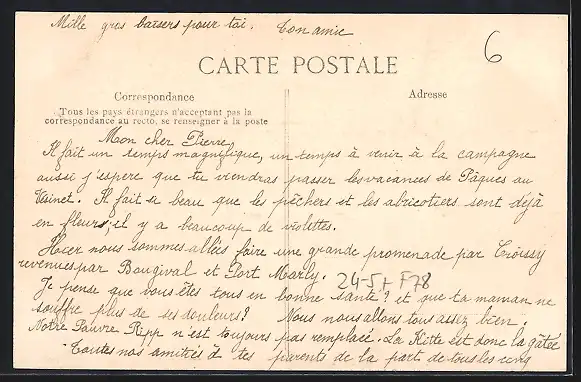 Mille gros baisers pour toi. Ton amie
6
CARTE POSTALE
Correspondance
Adresse
Tous les pays étrangers n'acceptant pas la
correspondance au recto, se renseigner à la poste
Mon cher Pierre
Il fait un temps magnifique, un temps à venir à la campagne
aussi j'espere que tu viendras passer les vacances de Pâques au
Vésinet. Il fait si beau que les pêchers et les abricotiers sont déjà
en fleurs; il y a beaucoup de violettes.
Hier nous sommes allés faire une grande promenade par Croissy
revenues par Bougival et Port Marly.
24-5+ F78
Je pense que vous êtes tous en bonne santé? et que ta maman ne
souffre plus de ses douleurs? Nous nous allons tous assez bien.
Notre Pauvre Ripp n'est toujours pas remplacé. La Kitte est donc la gâtée
Toutes nos amitiés à tes parents de la part de tous les cinq